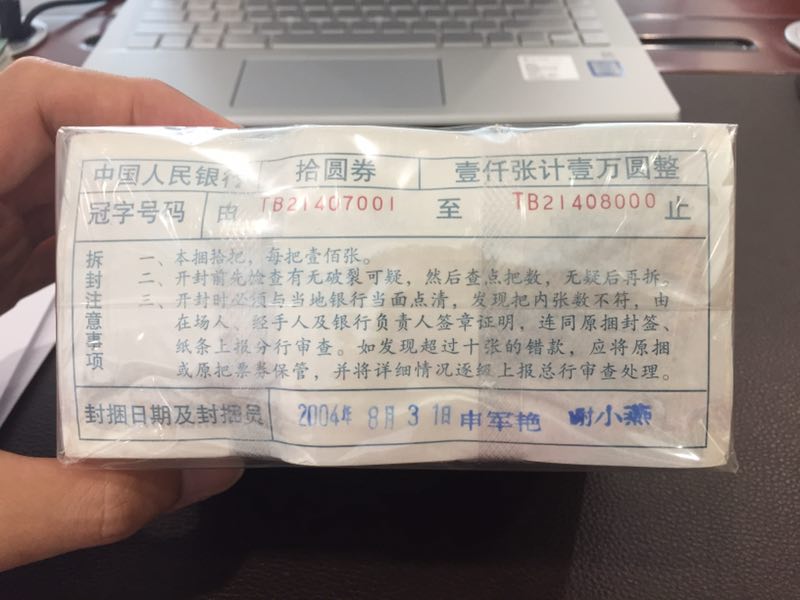 中国人民银行 拾圆券 壹仟张计壹万圆整
冠字号码 由 TB21407001 至 TB21408000 止
拆封注意事项
一、本捆拾把，每把壹佰张。
二、开封前先检查有无破裂可疑，然后查点把数，无疑后再拆。
三、开封时必须与当地银行当面点清，发现把内张数不符，由
在场人、经手人及银行负责人签章证明，连同原捆封签、
纸条上报分行审查。如发现超过十张的错款，应将原捆
或原把票券保管，并将详细情况逐级上报总行审查处理。
封捆日期及封捆员 2004年 8月 3 1日 申军艳 谢小燕